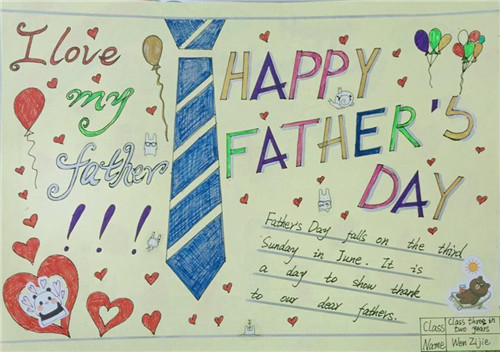 I love
my
father
!!!
HAPPY
FATHER'S
DAY
Father's Day falls on the third
Sunday in June. It is
a day to show thank
to our dear fathers.
Class Class three in
two years
Name Wen Zijie